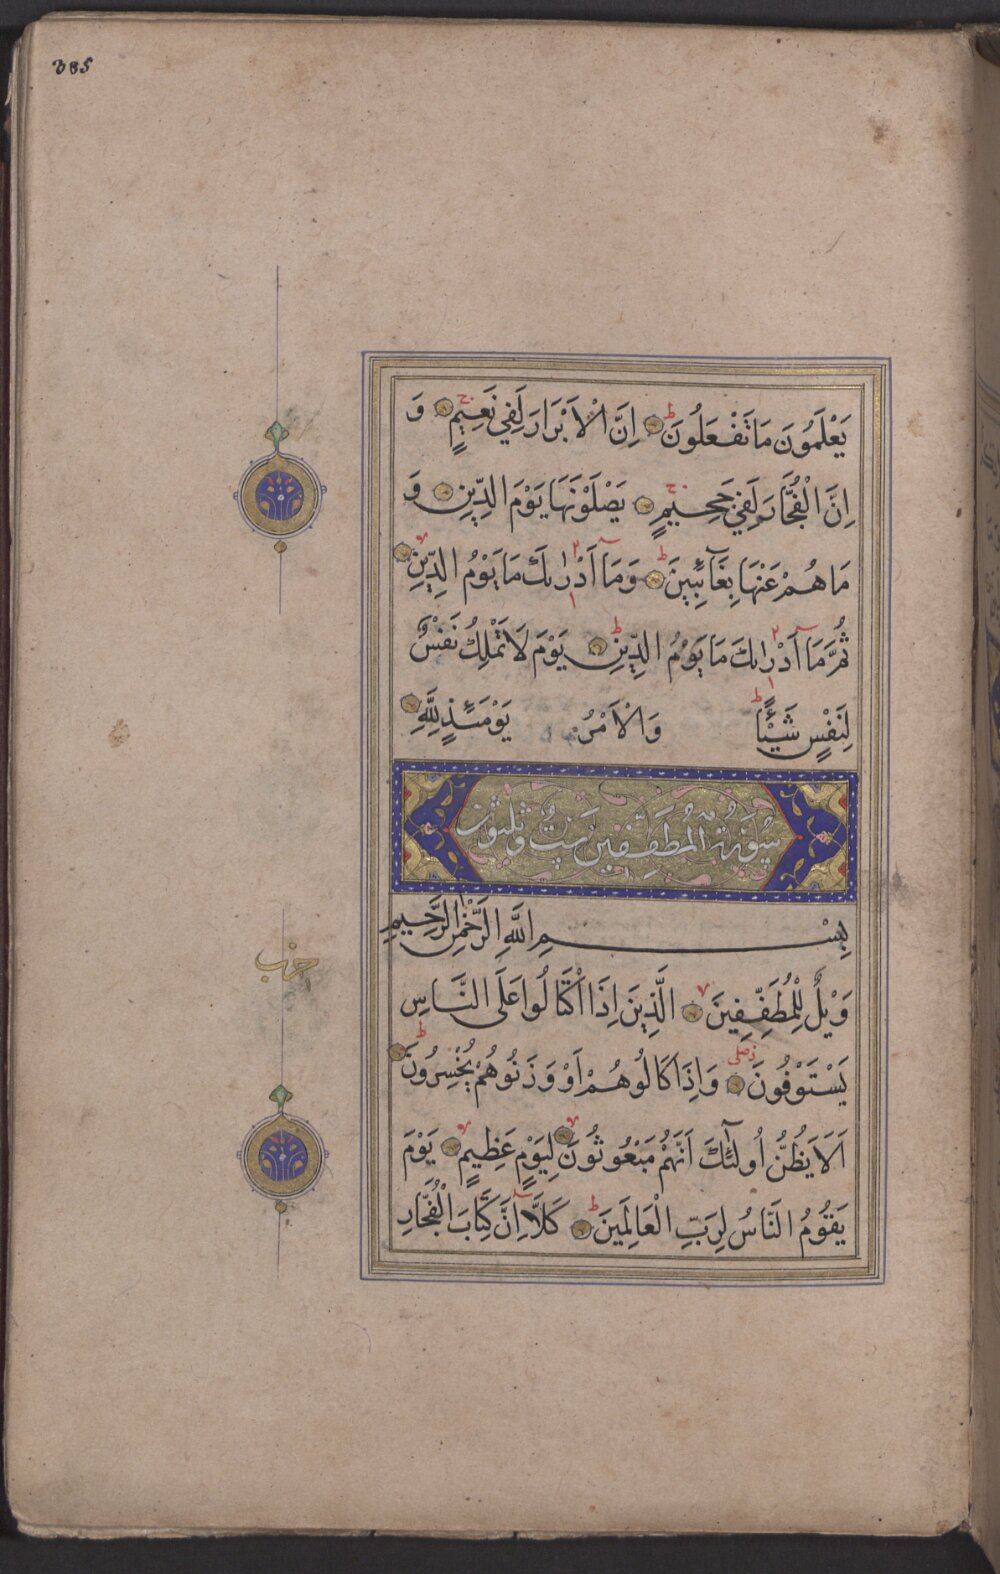 385
يَعْلَمُونَ مَا تَفْعَلُونَ ط اِنَّ الْاَبْرَارَ لَفِي نَعِيمٍ ج وَ
اِنَّ الْفُجَّارَ لَفِي جَحِيمٍ ج يَصْلَوْنَهَا يَوْمَ الدِّينِ وَ
مَا هُمْ عَنْهَا بِغَآئِبِينَ ط وَمَآ اَدْرٰىكَ مَا يَوْمُ الدِّينِ لا
ثُمَّ مَآ اَدْرٰىكَ مَا يَوْمُ الدِّينِ ط يَوْمَ لَا تَمْلِكُ نَفْسٌ
لِنَفْسٍ شَيْئًا ط وَالْاَمْرُ يَوْمَئِذٍ لِلَّهِ
سُورَةُ الْمُطَفِّفِينَ سِتٌّ وَثَلٰثُونَ
بِسْمِ اللَّهِ الرَّحْمٰنِ الرَّحِيمِ
وَيْلٌ لِلْمُطَفِّفِينَ لا الَّذِينَ اِذَا اكْتَالُوا عَلَى النَّاسِ
حزب
يَسْتَوْفُونَ صلى وَاِذَا كَالُوهُمْ اَوْ وَزَنُوهُمْ يُخْسِرُونَ ط
اَلَا يَظُنُّ اُولٰٓئِكَ اَنَّهُمْ مَبْعُوثُونَ لا لِيَوْمٍ عَظِيمٍ لا يَوْمَ
يَقُومُ النَّاسُ لِرَبِّ الْعَالَمِينَ ط كَلَّآ اِنَّ كِتَابَ الْفُجَّارِ